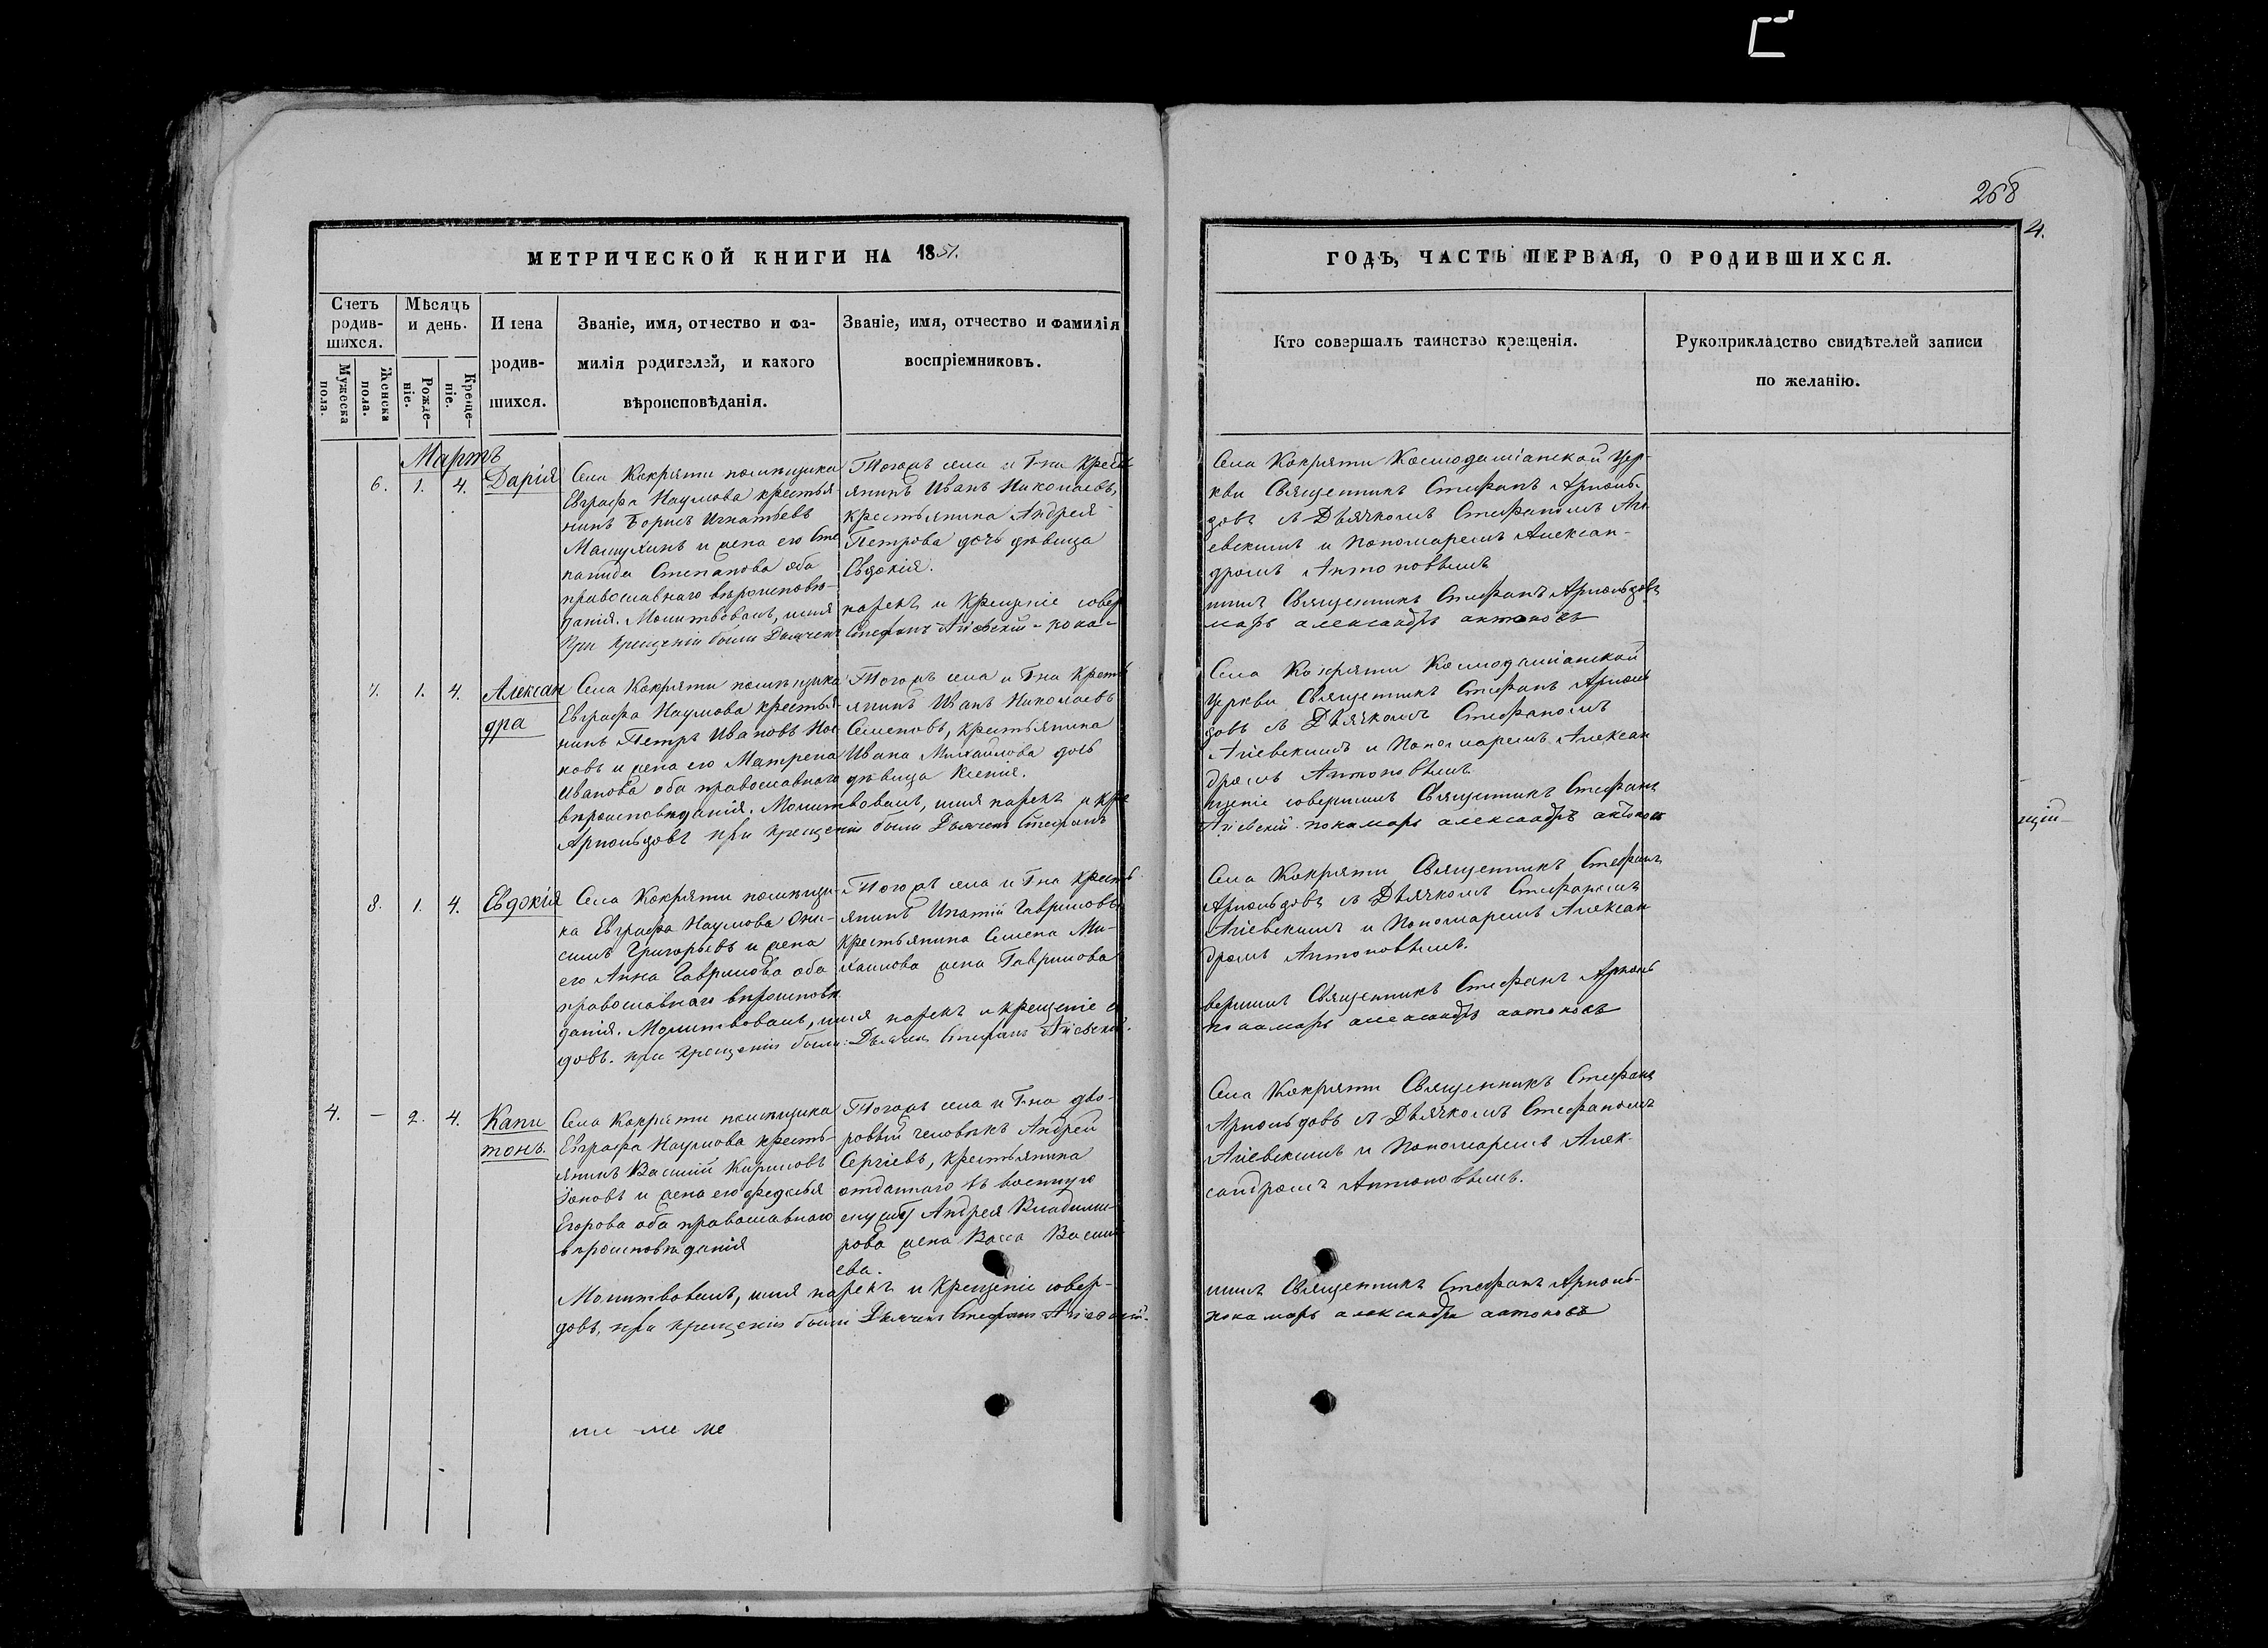 268
4.
МЕТРИЧЕСКОЙ КНИГИ НА 1851.
ГОДЪ, ЧАСТЬ ПЕРВАЯ, О РОДИВШИХСЯ.
Счетъ родив-шихся.
Мужеска пола.
Женска пола.
Мѣсяцъ и день.
Рожде-ніе.
Креще-ніе.
Имена
родив-
шихся.
Званіе, имя, отчество и фа-
милія родителей, и какого
вѣроисповѣданія.
Званіе, имя, отчество и фамилія
воспріемниковъ.
Кто совершалъ таинство крещенія.
Рукоприкладство свидѣтелей записи
по желанію.
Мартъ
6. 1. 4. Дарія
Села Кокряти помѣщика
Евграфа Наумова крестья
нинъ Борисъ Игнатьевъ
и жена его Сте
панида Степанова оба
православнаго вѣроисповѣ-
данія. Молитвовалъ, имя
При крещеніи были Дьячекъ
Тогожъ села и Г-на Кресть
янинъ Иванъ Николаевъ,
крестьянина Андрея
Петрова дочь дѣвица
Евдокія.
нарекъ и Крещеніе совер
Стефанъ Агіевскій - пона-
Села Кокряти Космодаміанской Цер-
кви Священникъ Стефанъ Арноль-
довъ съ Дьячкомъ Стефаномъ Агі-
евскимъ и Пономаремъ Алексан-
дромъ Антоновымъ
шилъ Священникъ Стефанъ Арнольдовъ
марь александръ антоновъ
7. 1. 4. Алексан
дра
Села Кокряти помѣщика
Евграфа Наумова крестья-
нинъ Петръ Ивановъ Нос
ковъ и жена его Матрена
Иванова оба православнаго
вѣроисповѣданія. Молитвовалъ, имя нарекъ и кре
Арнольдовъ при крещеніи были Дьячекъ Стефанъ
Тогожъ села и Г-на Кресть
янинъ Иванъ Николаевъ
Семеновъ, крестьянина
Ивана Михайлова дочь
дѣвица Ксенія.
Села Кокряти Космодаміанской
Церкви Священникъ Стефанъ Арноль
довъ съ Дьячкомъ Стефаномъ
Агіевскимъ и Пономаремъ Алексан
дромъ Антоновымъ.
щеніе совершилъ Священникъ Стефанъ
Агіевскій - понамарь александръ антоновъ
8. 1. 4. Евдокія
Села Кокряти помѣщи-
ка Евграфа Наумова Они-
симъ Григорьевъ и жена
его Анна Гаврилова оба
православнаго вѣроисповѣ
данія. Молитвовалъ, имя нарекъ и крещеніе со
довъ. при крещеніи были: Дьячекъ Стефанъ Агіевскій.
Тогожъ села и Г-на Кресть
янинъ Ипатій Гавриловъ
крестьянина Семена Ми-
хайлова жена Гаврилова
Села Кокряти Священникъ Стефанъ
Арнольдовъ съ Дьячкомъ Стефаномъ
Агіевскимъ и Пономаремъ Алексан
дромъ Антоновымъ.
вершилъ Священникъ Стефанъ Арноль
понамарь александръ антоновъ
4. — 2. 4. Капи
тонъ.
Села Кокряти помѣщика
Евграфа Наумова кресть-
янинъ Василій Кириловъ
и жена его Федосья
Егорова оба православнаго
вѣроисповѣданія
Тогожъ села и Г-на дво-
ровый человѣкъ Андрей
Сергіевъ, крестьянина
отданнаго въ военную
службу Андрея Владими-
рова жена Васса Василь
ева.
Молитвовалъ, имя нарекъ и Крещеніе совер-
довъ, при крещеніи были Дьячекъ Стефанъ Агіевскій.
Села Кокряти Священникъ Стефанъ
Арнольдовъ съ Дьячкомъ Стефаномъ
Агіевскимъ и Пономаремъ Алек-
сандромъ Антоновымъ.
шилъ Священникъ Стефанъ Арноль-
понамарь александръ антоновъ